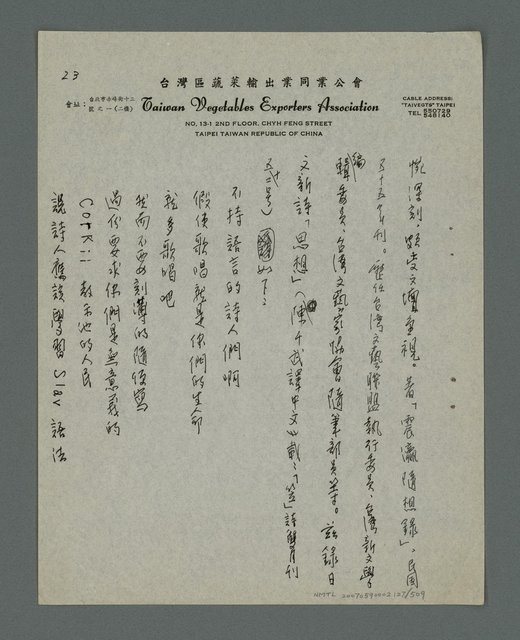 23
台灣區蔬菜輸出業同業公會
會址：台北市赤峰街十三號之一(二樓)
Taiwan Vegetables Exporters Association
NO. 13-1 2ND FLOOR. CHYH FENG STREET
TAIPEI TAIWAN REPUBLIC OF CHINA
CABLE ADDRESS:
"TAIVEGTS" TAIPEI
TEL 550729
548140
慨深刻，頗受文壇重視。著「震瀛隨想錄」，民國
五十五年刊。歷任台湾文藝聯盟執行委員、台湾新文學
編輯委員、台湾文藝家協會隨筆部員等。茲錄日
文新詩「思想」（陳千武譯中文，載：「笠」詩雙月刊
五十二号）如下：
不持語言的詩人們啊
假使歌唱就是你們的生命
就多歌唱吧
我而不要刻薄的隨便寫
過份要求你們是無意義的
Corkii 教示他的人民
說詩人應該學習 Slav 語法
NMTL 20070590002 127/509